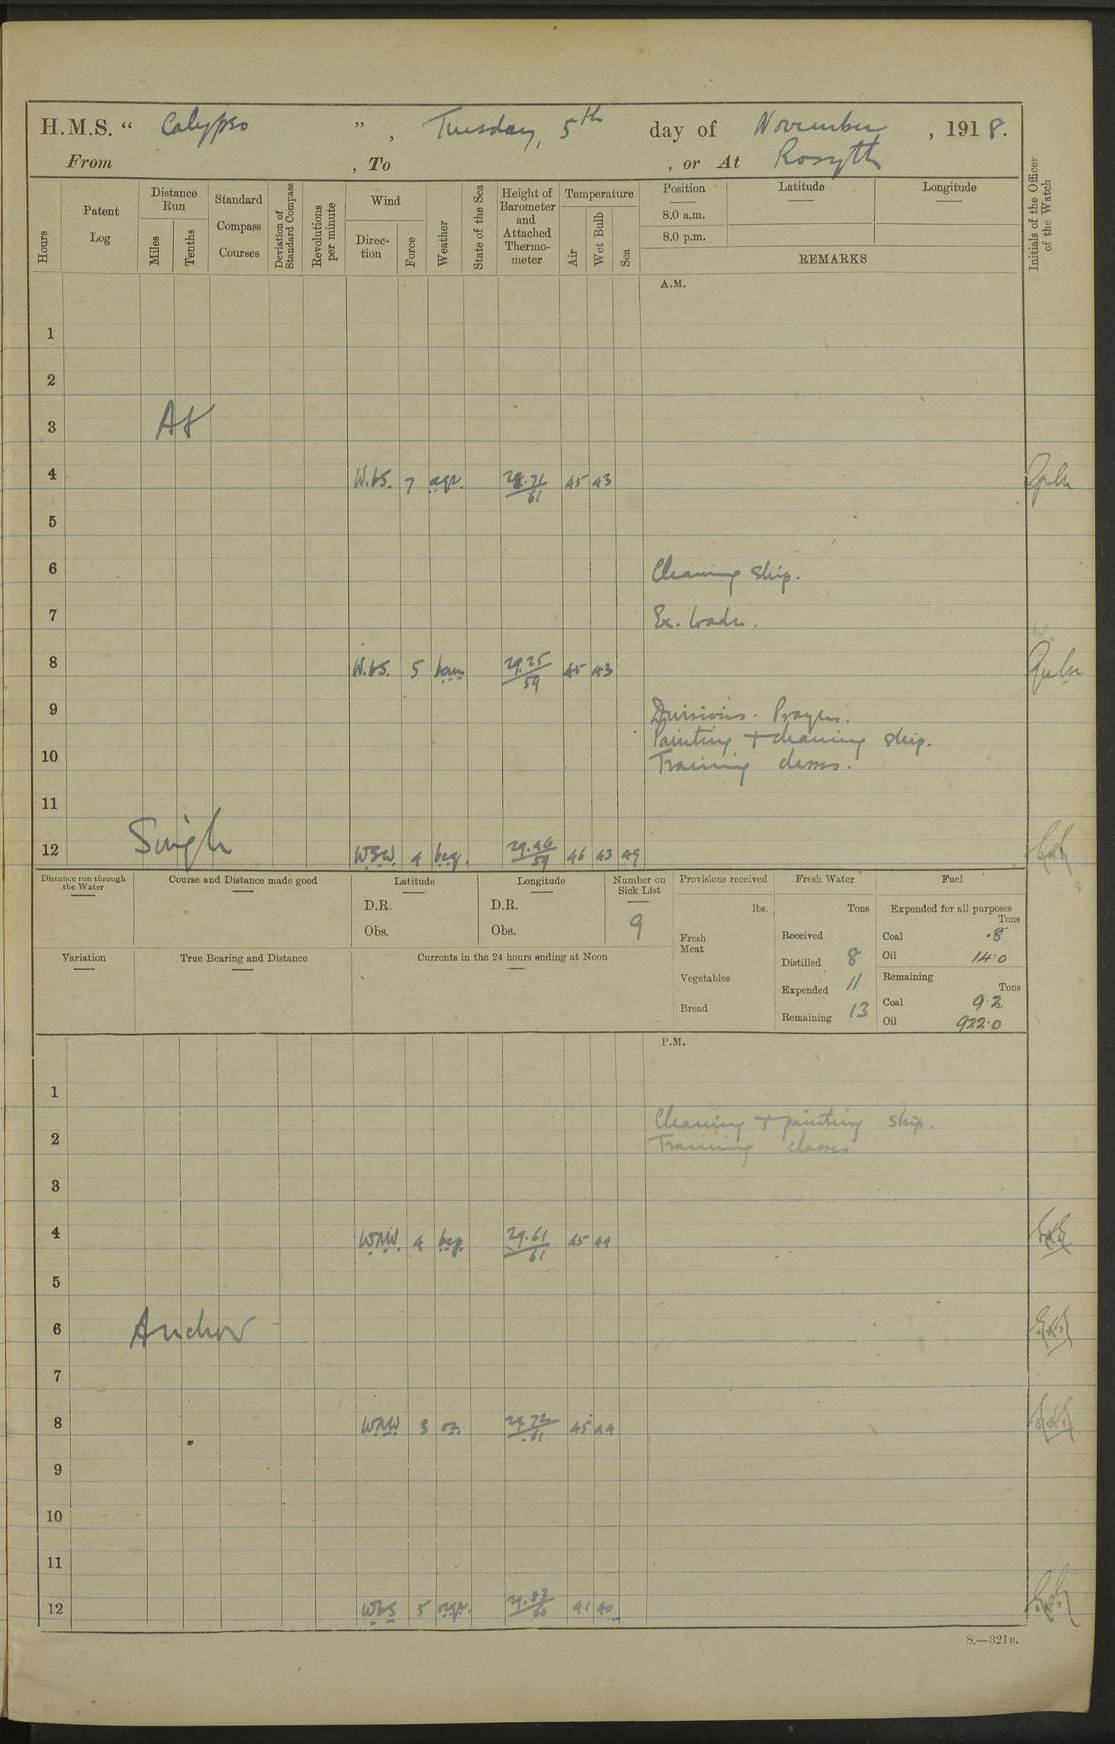 H.M.S. “ Calypso ” , Tuesday, 5th day of November , 1918.
From , To , or At Rosyth
Hours
Patent Log
Distance Run
Miles
Tenths
Standard Compass Courses
Deviation of Standard Compass
Revolutions per minute
Wind
Direction
Force
Weather
State of the Sea
Height of Barometer and Attached Thermometer
Temperature
Air
Wet Bulb
Sea
Position
8.0 a.m.
8.0 p.m.
Latitude
Longitude
REMARKS
Initials of the Officer of the Watch
A.M.
1
2
3 At
4 W.bS. 7 29.21/61 45 43
5
6 Cleaning ship.
7 Ex.
8 W.bS. 5 29.25/59 45 43
9 Divisions. Prayers.
Painting + cleaning ship.
10 Training classes.
11
12 Single WSW. 4 29.46/59 46 43 49
Distance run through the Water
Course and Distance made good
Latitude
D.R.
Obs.
Longitude
D.R.
Obs.
Number on Sick List
9
Provisions received
lbs.
Fresh Meat
Vegetables
Bread
Fresh Water
Tons
Received
Distilled 8
Expended 11
Remaining 13
Fuel
Expended for all purposes
Tons
Coal .8
Oil 14.0
Remaining
Tons
Coal 9.2
Oil 922.0
Variation
True Bearing and Distance
Currents in the 24 hours ending at Noon
P.M.
1
Cleaning + painting ship.
2 Training classes
3
4 WNW. 4 bcp. 29.61/61 45 44
5
6 Anchor
7
8 WNW 3 29.72/61 45 44
9
10
11
12 WbS 5 29.83/60 41 40
S.—321B.